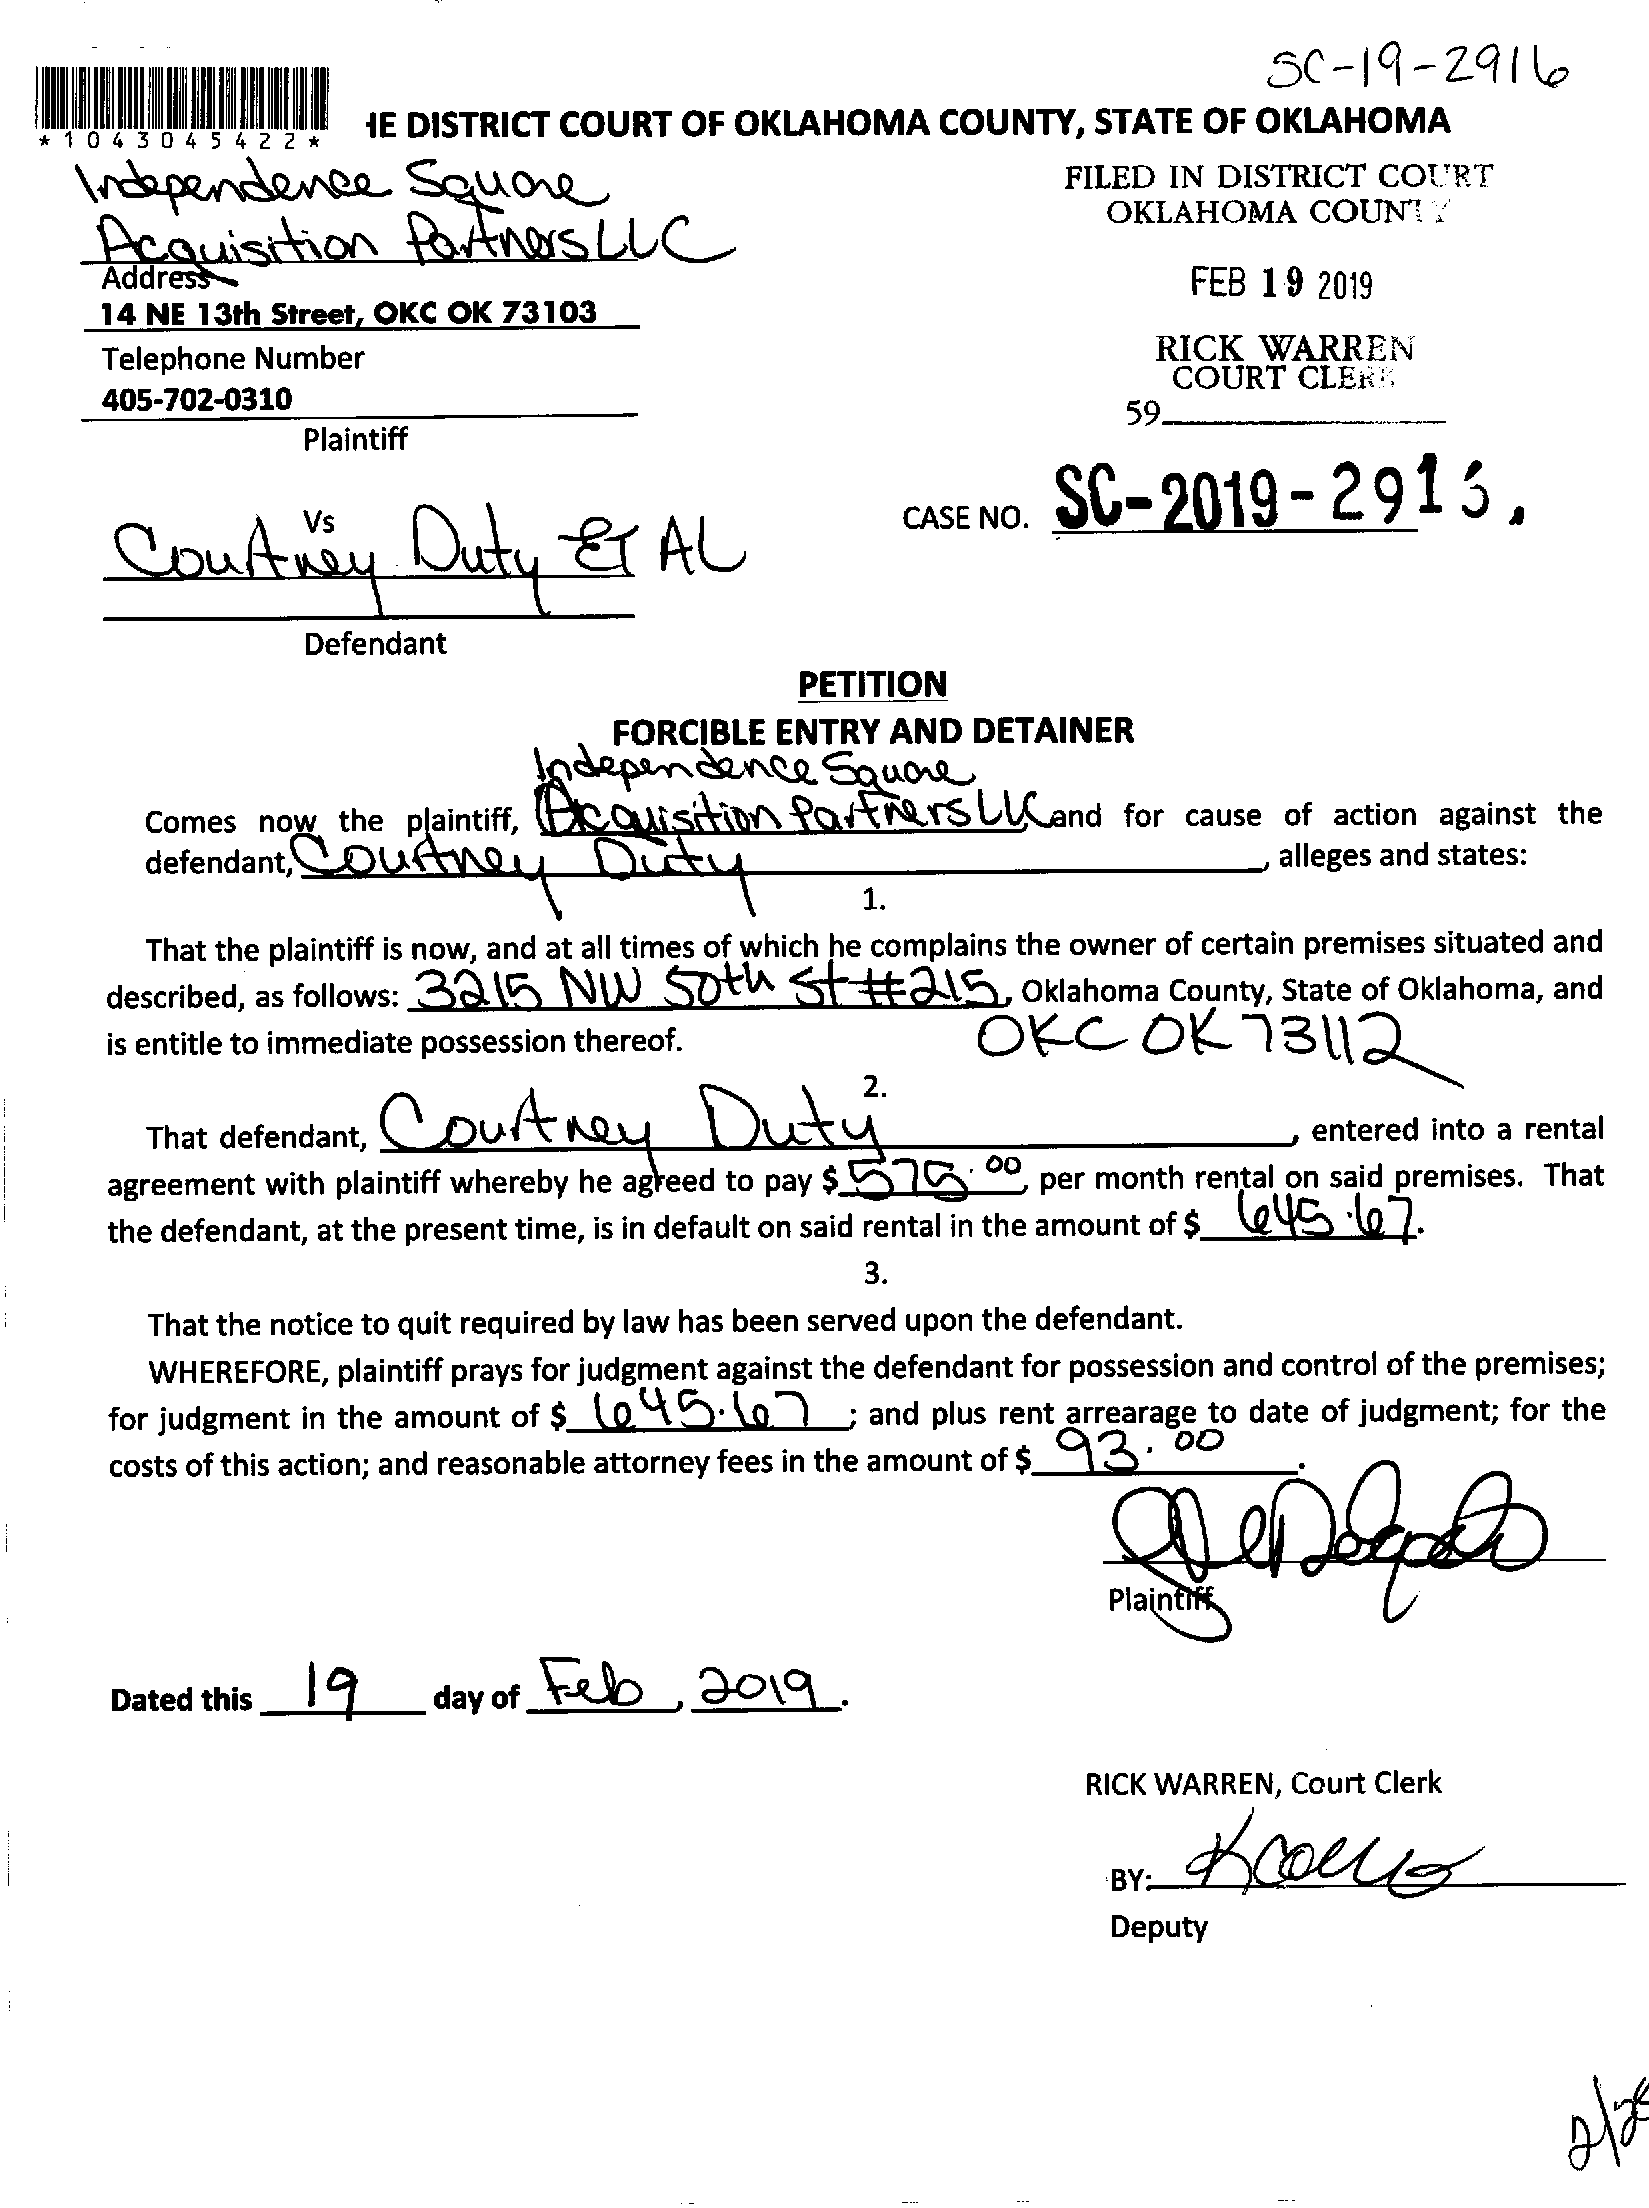 SC-19-2916
*1043045422*
IE DISTRICT COURT OF OKLAHOMA COUNTY, STATE OF OKLAHOMA
Independence Square
Acquisition Partners LLC
Address
14 NE 13th Street, OKC OK 73103
Telephone Number
405-702-0310
Plaintiff
FILED IN DISTRICT COURT
OKLAHOMA COUNTY
FEB 19 2019
RICK WARREN
COURT CLERK
59
CASE NO. SC-2019-291
Vs
Courtney Duty ET AL
Defendant
PETITION
FORCIBLE ENTRY AND DETAINER
Independence Square
Comes now the plaintiff, Acquisition Partners LLC and for cause of action against the
defendant, Courtney Duty, alleges and states:
1.
That the plaintiff is now, and at all times of which he complains the owner of certain premises situated and
described, as follows: 3215 NW 50th St #215, Oklahoma County, State of Oklahoma, and
is entitle to immediate possession thereof. OKC OK 73112
2.
That defendant, Courtney Duty, entered into a rental
agreement with plaintiff whereby he agreed to pay $ 575.00 per month rental on said premises. That
the defendant, at the present time, is in default on said rental in the amount of $ 645.67.
3.
That the notice to quit required by law has been served upon the defendant.
WHEREFORE, plaintiff prays for judgment against the defendant for possession and control of the premises;
for judgment in the amount of $ 645.67; and plus rent arrearage to date of judgment; for the
costs of this action; and reasonable attorney fees in the amount of $ 93.00.
Plaintiff
Dated this 19 day of Feb, 2019.
RICK WARREN, Court Clerk
BY:
Deputy